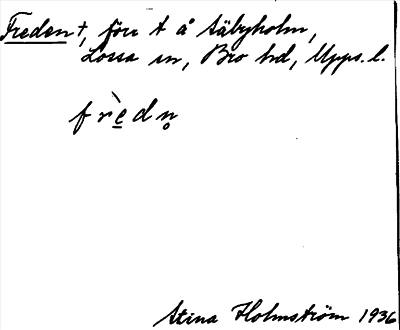 Freden †, förr t å Säbyholm,
Låssa sn, Bro hd, Upps. l.
frèdn̥
Stina Holmström 1936